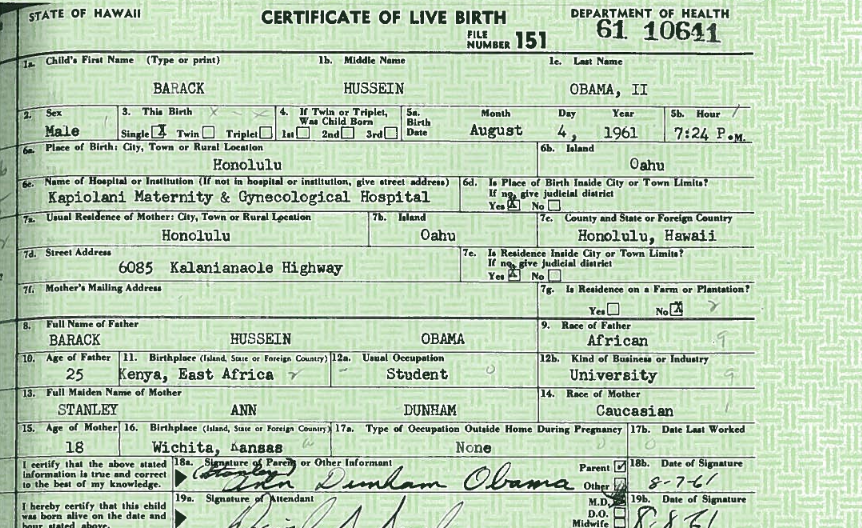 STATE OF HAWAII CERTIFICATE OF LIVE BIRTH DEPARTMENT OF HEALTH
FILE NUMBER 151 61 10641
1a. Child's First Name (Type or print) 1b. Middle Name 1c. Last Name
BARACK HUSSEIN OBAMA, II
2. Sex 3. This Birth 4. If Twin or Triplet, Was Child Born 5a. Birth Date Month Day Year 5b. Hour
Male Single X Twin Triplet 1st 2nd 3rd August 4, 1961 7:24 P.M.
6a. Place of Birth: City, Town or Rural Location 6b. Island
Honolulu Oahu
6c. Name of Hospital or Institution (If not in hospital or institution, give street address) 6d. Is Place of Birth Inside City or Town Limits?
If no, give judicial district
Kapiolani Maternity & Gynecological Hospital Yes X No
7a. Usual Residence of Mother: City, Town or Rural Location 7b. Island 7c. County and State or Foreign Country
Honolulu Oahu Honolulu, Hawaii
7d. Street Address 7e. Is Residence Inside City or Town Limits?
If no, give judicial district
6085 Kalanianaole Highway Yes X No
7f. Mother's Mailing Address 7g. Is Residence on a Farm or Plantation?
Yes No X
8. Full Name of Father 9. Race of Father
BARACK HUSSEIN OBAMA African 9
10. Age of Father 11. Birthplace (Island, State or Foreign Country) 12a. Usual Occupation 12b. Kind of Business or Industry
25 Kenya, East Africa Student University 9
13. Full Maiden Name of Mother 14. Race of Mother
STANLEY ANN DUNHAM Caucasian
15. Age of Mother 16. Birthplace (Island, State or Foreign Country) 17a. Type of Occupation Outside Home During Pregnancy 17b. Date Last Worked
18 Wichita, Kansas None
I certify that the above stated information is true and correct to the best of my knowledge. 18a. Signature of Parent or Other Informant Parent Other 18b. Date of Signature
(Stanley) Ann Dunham Obama 8-7-61
I hereby certify that this child was born alive on the date and hour stated above. 19a. Signature of Attendant M.D. D.O. Midwife 19b. Date of Signature
8-8-61